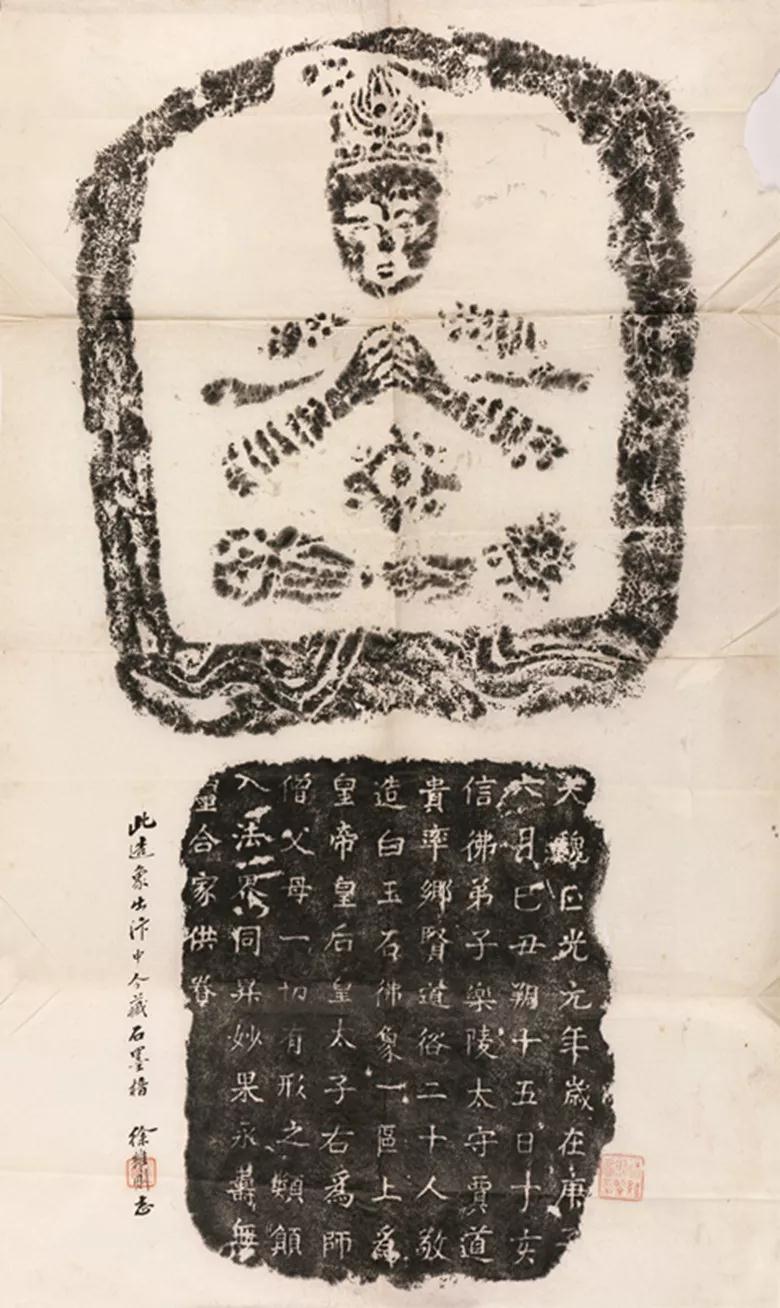 大魏正光元年歲在庚子
六月巳丑朔十五日十亥
信佛弟子樂陵太守賈道
貴率鄉賢道俗二十人敬
造白玉石佛象一區上爲
皇帝皇后皇太子右爲師
僧父母一切有形之類願
入法界同昇妙果永壽無
量合家供養
此造象出汴中今藏石墨 徐維則志